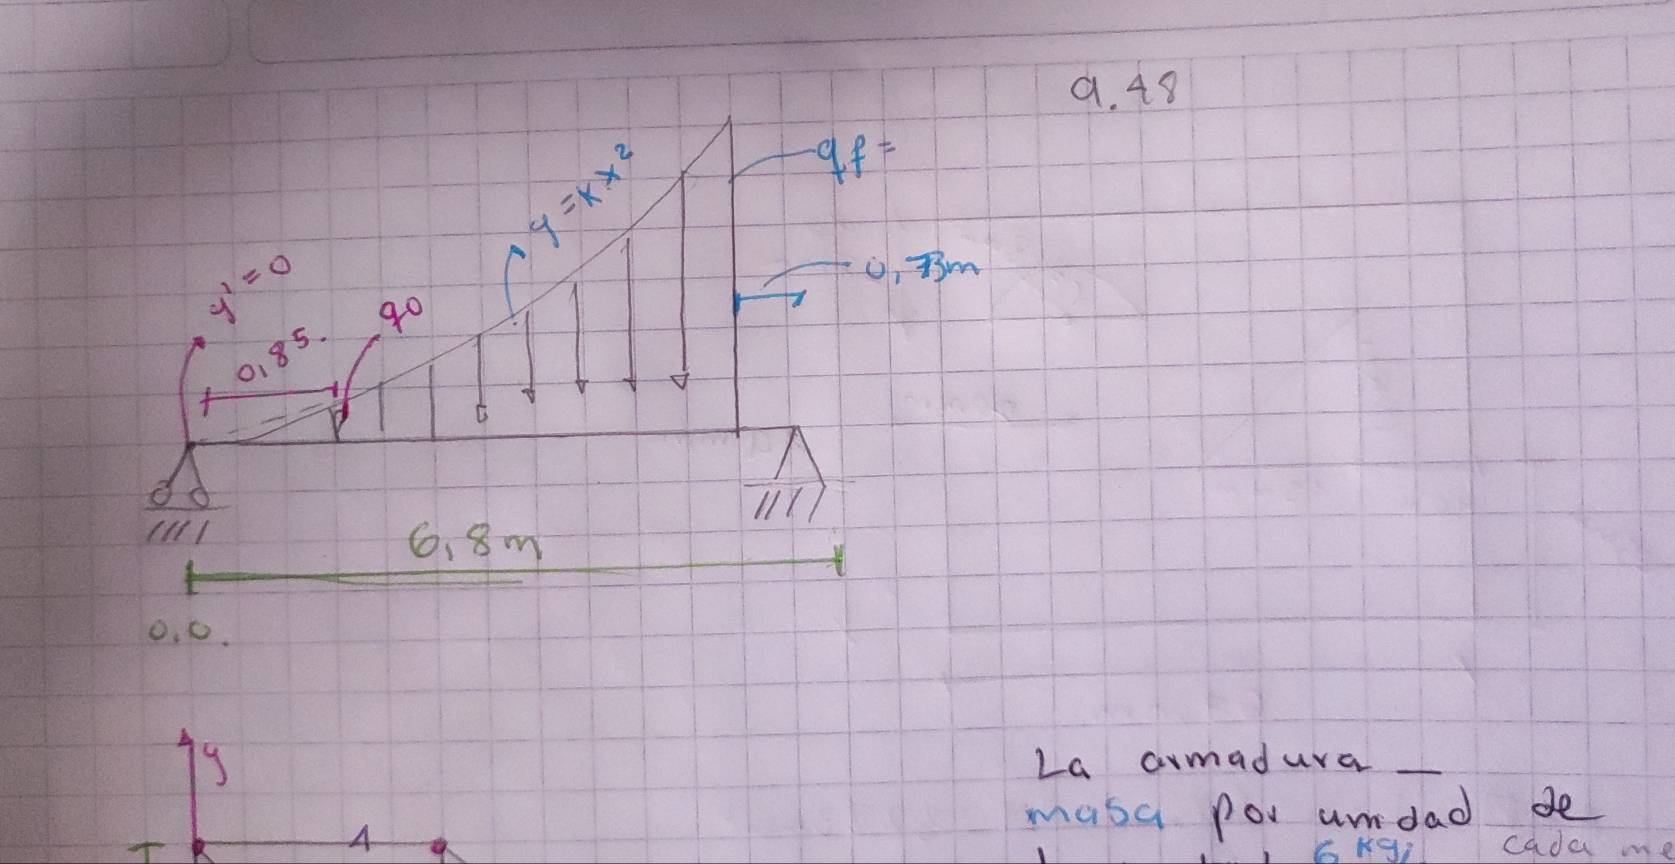 9.48
qf =
y = kx²
0,73m
y' = 0
q0
0,85.
6,8m
0,0.
y
La armadura —
masa por unidad de
A
6 kg/
cada